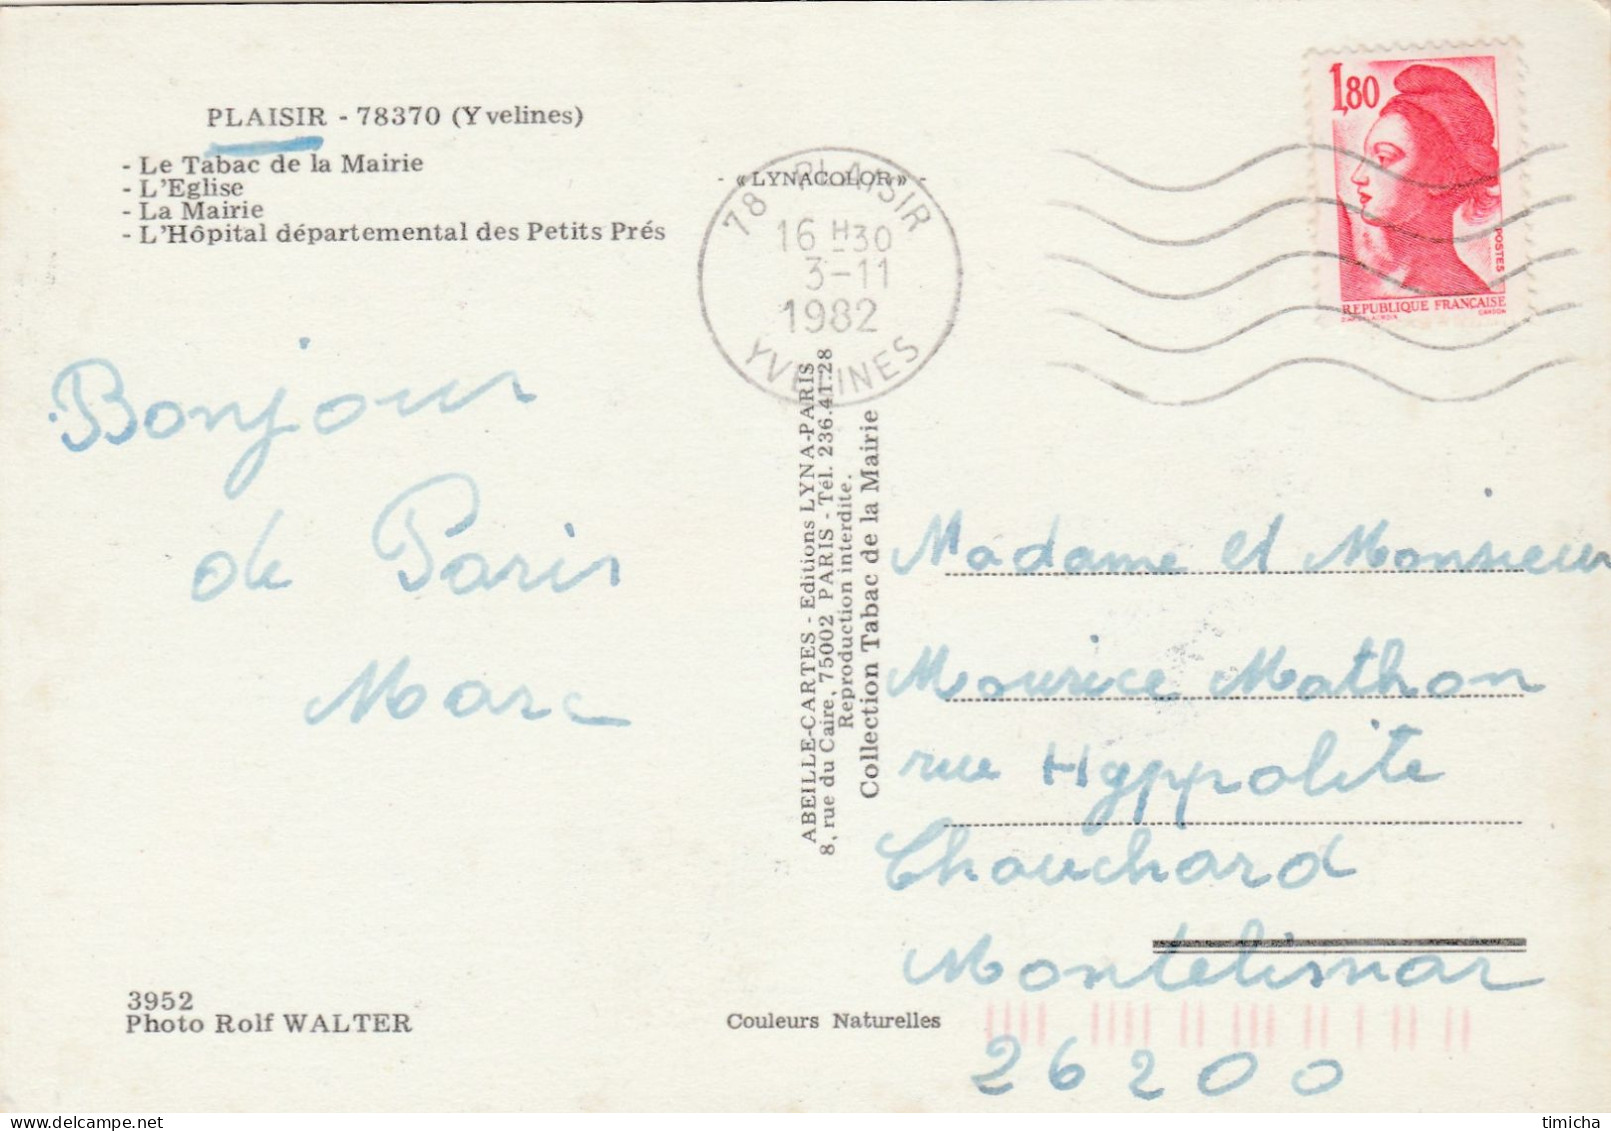 PLAISIR - 78370 (Yvelines)
- Le Tabac de la Mairie
- L'Eglise
- La Mairie
- L'Hôpital départemental des Petits Prés
Bonjour
de Paris
Marc
3952
Photo Rolf WALTER
- «LYNACOLOR» -
78 PLAISIR
16 H 30
3-11
1982
YVELINES
ABEILLE-CARTES - Editions LYNA-PARIS
8, rue du Caire, 75002 PARIS - Tél. 236.41.28
Reproduction interdite.
Collection Tabac de la Mairie
Couleurs Naturelles
1,80
POSTES
REPUBLIQUE FRANÇAISE
GANDON
Madame et Monsieur
Maurice Mathon
rue Hyppolite
Chauchard
Montelimar
26200
timicha